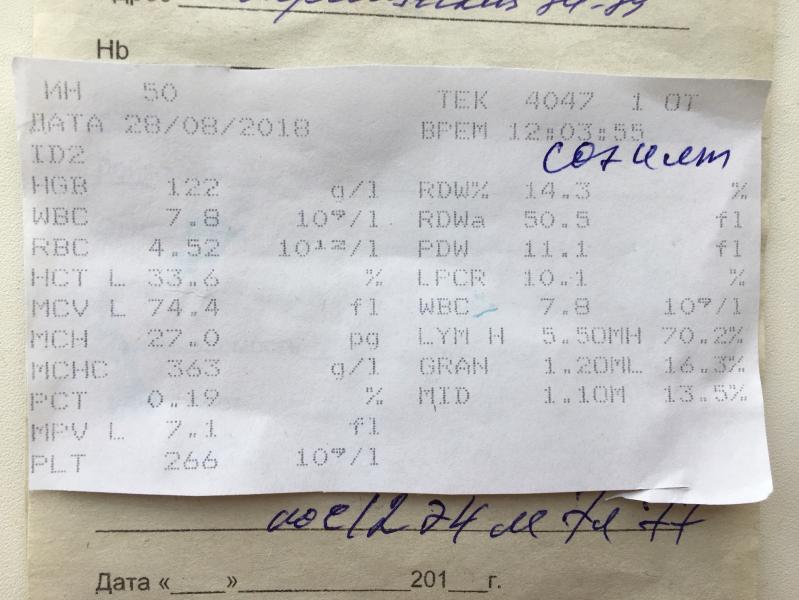 Hb
ИН 50 ТЕК 4047 1 ОТ
ДАТА 28/08/2018 ВРЕМ 12:03:55
ID2
HGB 122 g/l RDW% 14.3 %
WBC 7.8 10⁹/l RDWa 50.5 fl
RBC 4.52 10¹²/l PDW 11.1 fl
HCT L 33.6 % LPCR 10.1 %
MCV L 74.4 fl WBC 7.8 10⁹/l
MCH 27.0 pg LYM H 5.50MH 70.2%
MCHC 363 g/l GRAN 1.20ML 16.3%
PCT 0.19 % MID 1.10M 13.5%
MPV L 7.1 fl
PLT 266 10⁹/l
Дата «____»______________201___г.